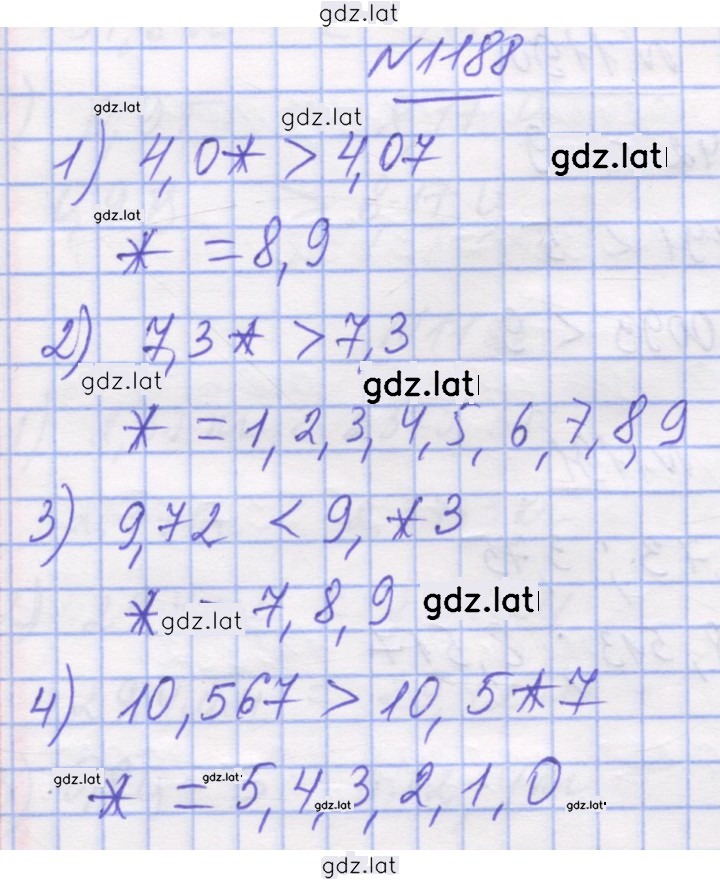 gdz.lat
N1188
gdz.lat
gdz.lat
1) 4,0* > 4,07
gdz.lat
gdz.lat
* = 8,9
2) 7,3* > 7,3
gdz.lat
gdz.lat
* = 1, 2, 3, 4, 5, 6, 7, 8, 9
3) 9,72 < 9, *3
* = 7, 8, 9
gdz.lat
gdz.lat
4) 10,567 > 10, 5*7
gdz.lat
gdz.lat
* = 5, 4, 3, 2, 1, 0
gdz.lat
gdz.lat
gdz.lat